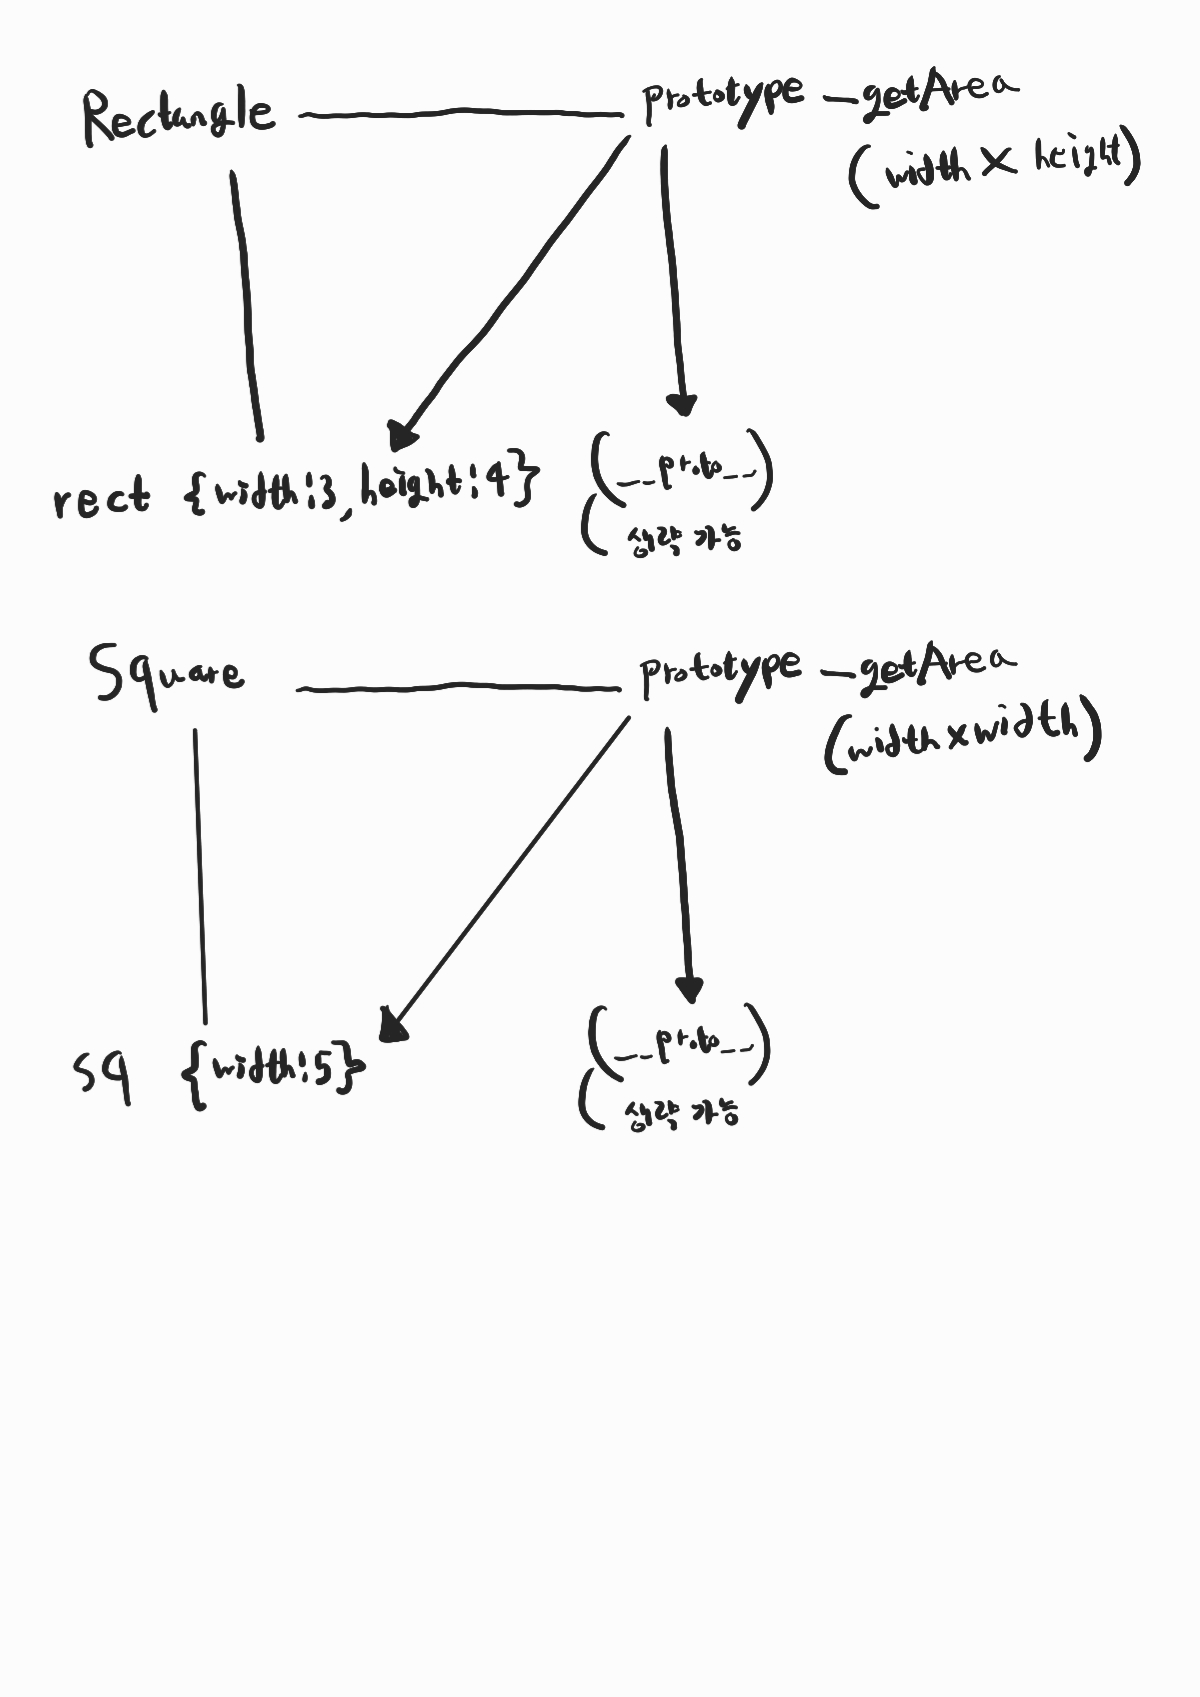 Rectangle prototype - getArea
(width X height)
rect {width:3, height:4} (__proto__)
(생략 가능
Square prototype - getArea
(width x width)
sq {width:5} (__proto__)
(생략 가능